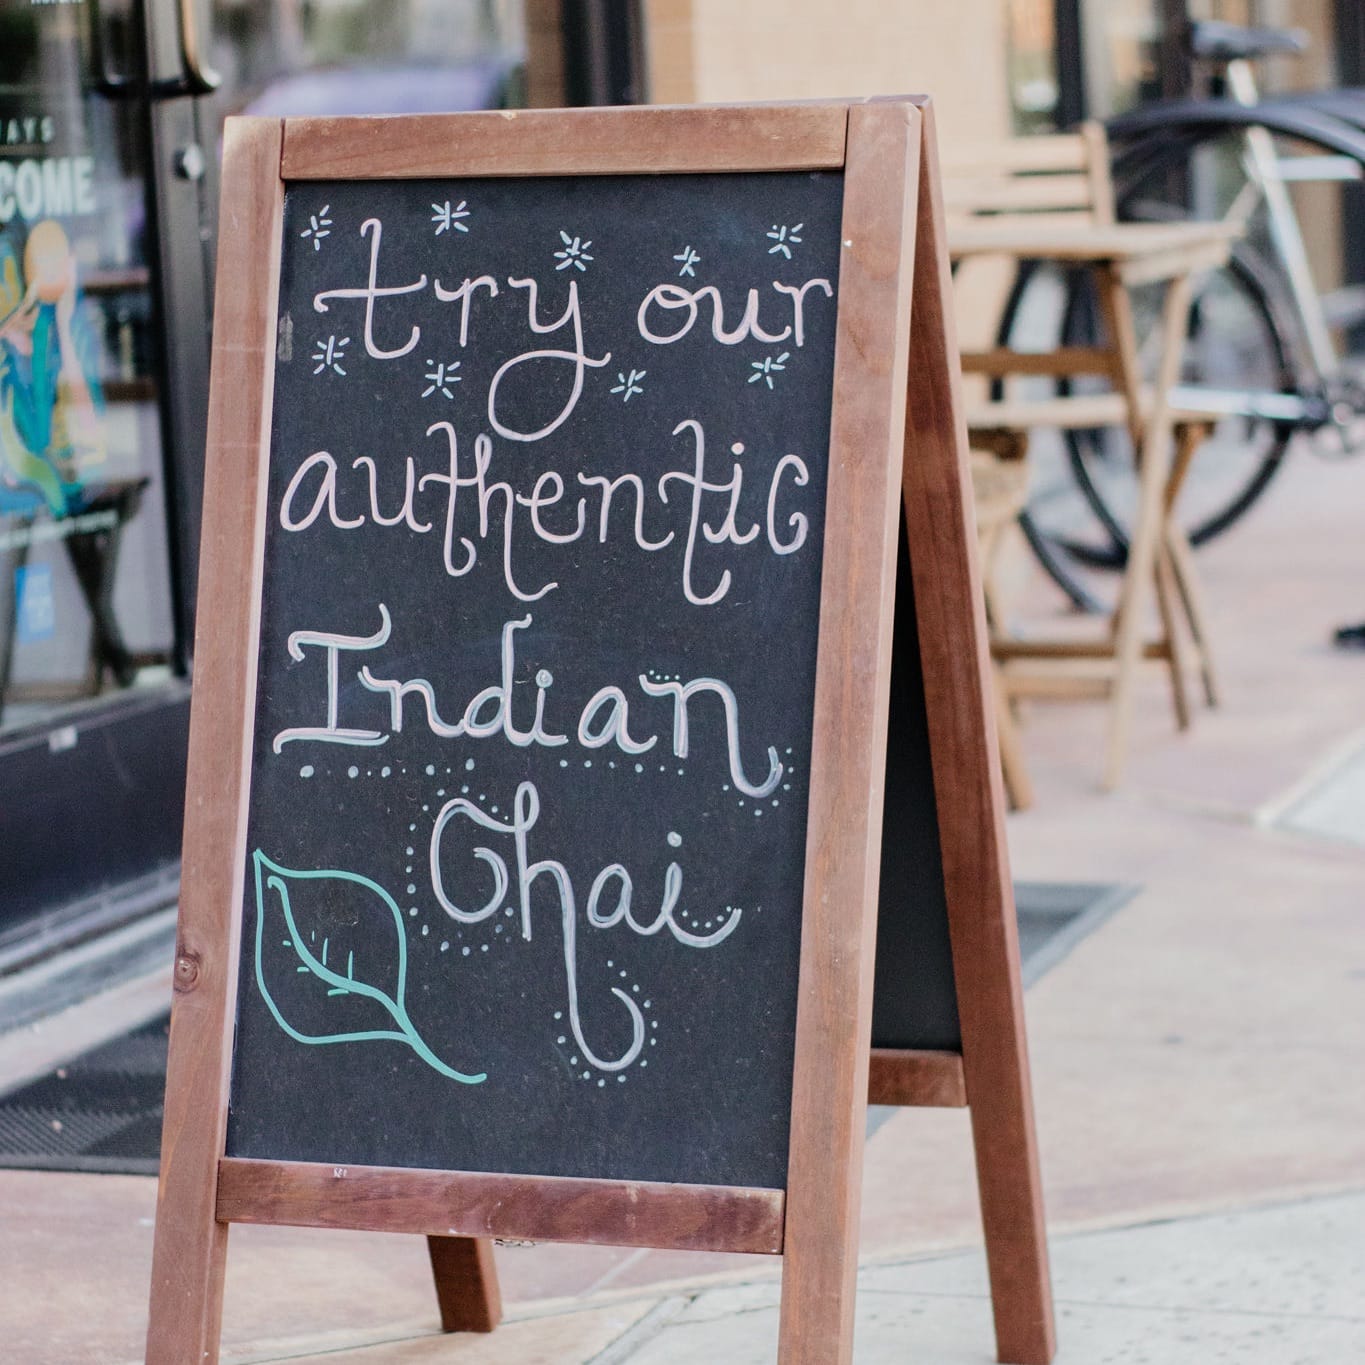 COME
try our
authentic
Indian
Chai